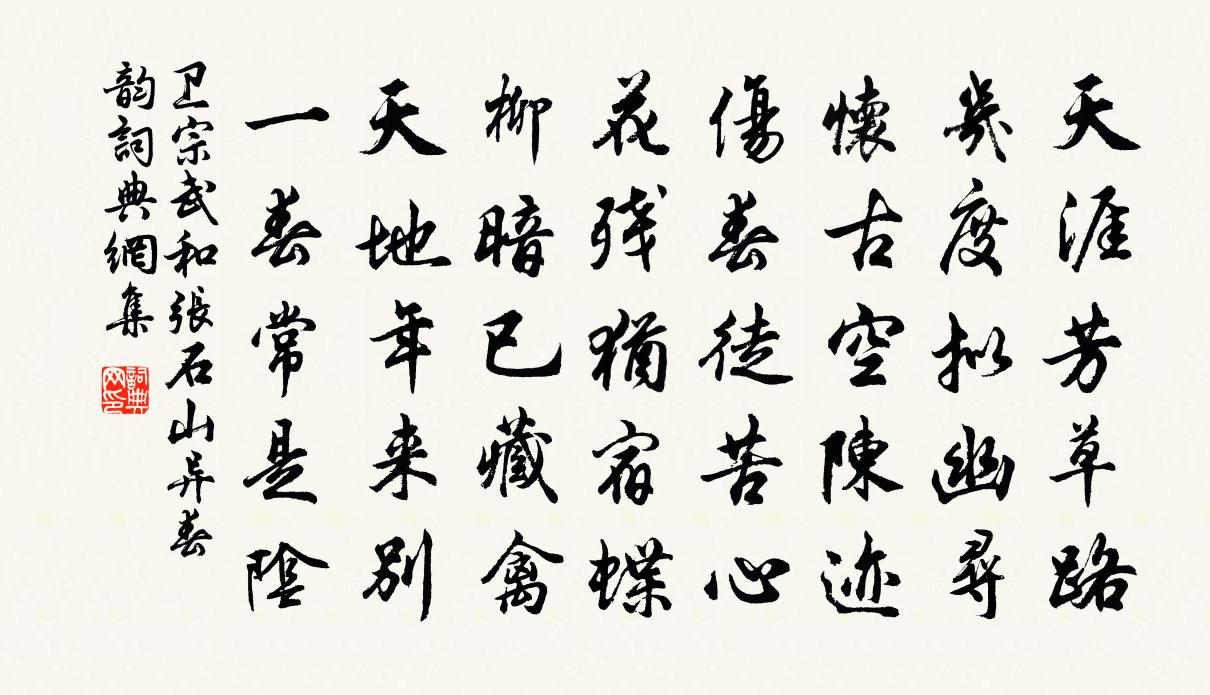 天涯芳草路
幾度拟幽尋
懷古空陳迹
傷春徒苦心
花残猶宿蝶
柳暗已藏禽
天地年来别
一春常是陰
卫宗武和張石山异春
韵詞典網集
詞典网印